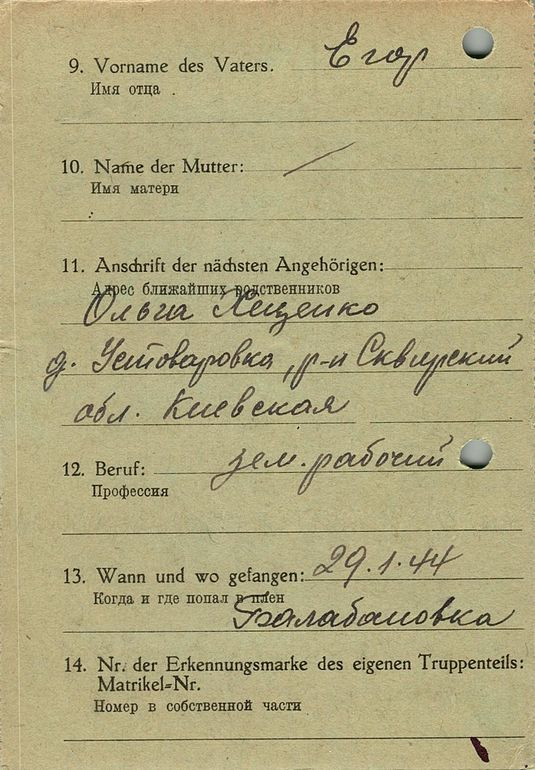 9. Vorname des Vaters. Егор
Имя отца .
10. Name der Mutter: /
Имя матери
11. Anschrift der nächsten Angehörigen:
Адрес ближайших родственников
Ольга Хещенко
д. Устоваровка, р-н Сквирский
обл. Киевская
12. Beruf: зем. рабочий
Профессия
13. Wann und wo gefangen: 29.1.44
Когда и где попал в плен
Балабановка
14. Nr. der Erkennungsmarke des eigenen Truppenteils:
Matrikel=Nr.
Номер в собственной части